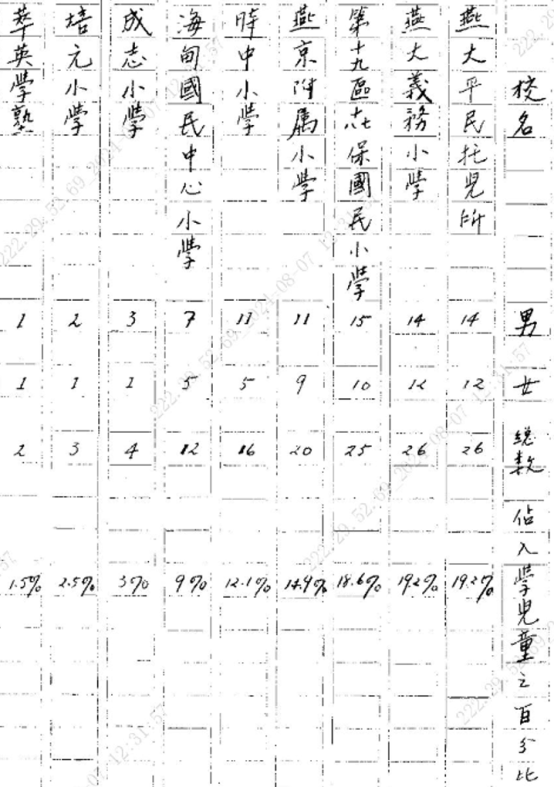 校名 男 女 總数 佔入學兒童之百分比
燕大平民托児所 14 12 26 19.2%
燕大義務小學 14 12 26 19.2%
第十九區六保國民小學 15 10 25 18.6%
燕京附属小學 11 9 20 14.9%
時中小學 11 5 16 12.1%
海甸國民中心小學 7 5 12 9%
成志小學 3 1 4 3%
培元小學 2 1 3 2.5%
萃英學塾 1 1 2 1.5%